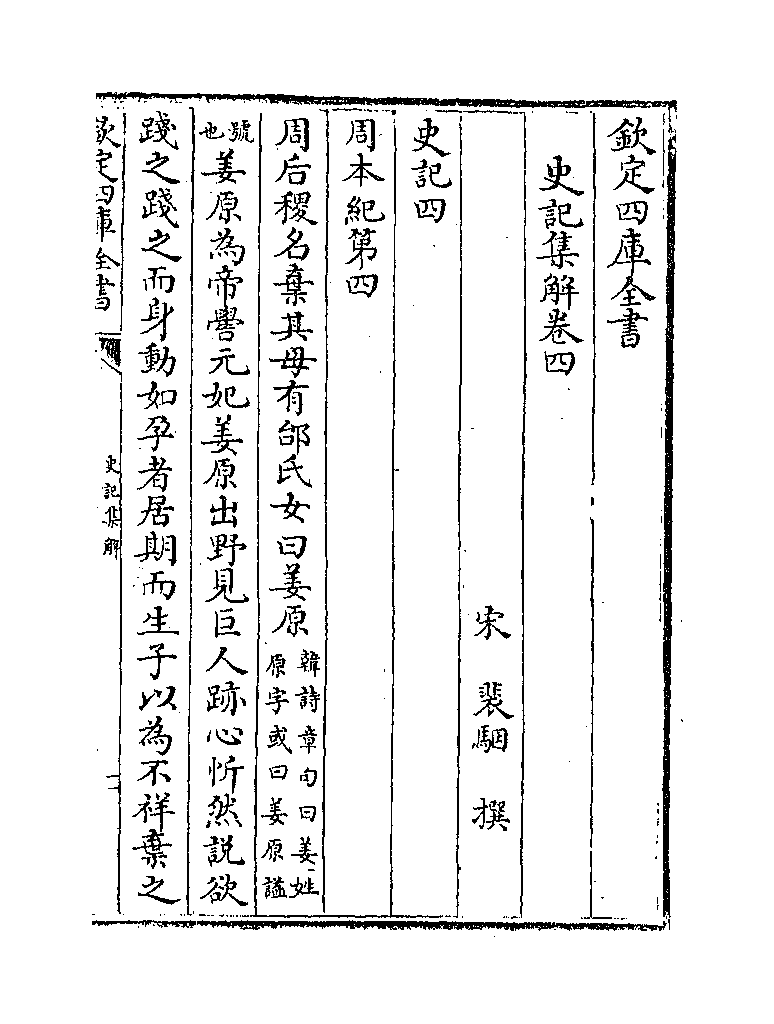 欽定四庫全書
史記集解卷四
宋 裴駰 撰
史記四
周本紀第四
周后稷名棄其母有邰氏女曰姜原韓詩章句曰姜姓
原字或曰姜原謚
號也姜原為帝嚳元妃姜原出野見巨人跡心忻然説欲
踐之踐之而身動如孕者居期而生子以為不祥棄之
欽定四庫全書
史記集解
一